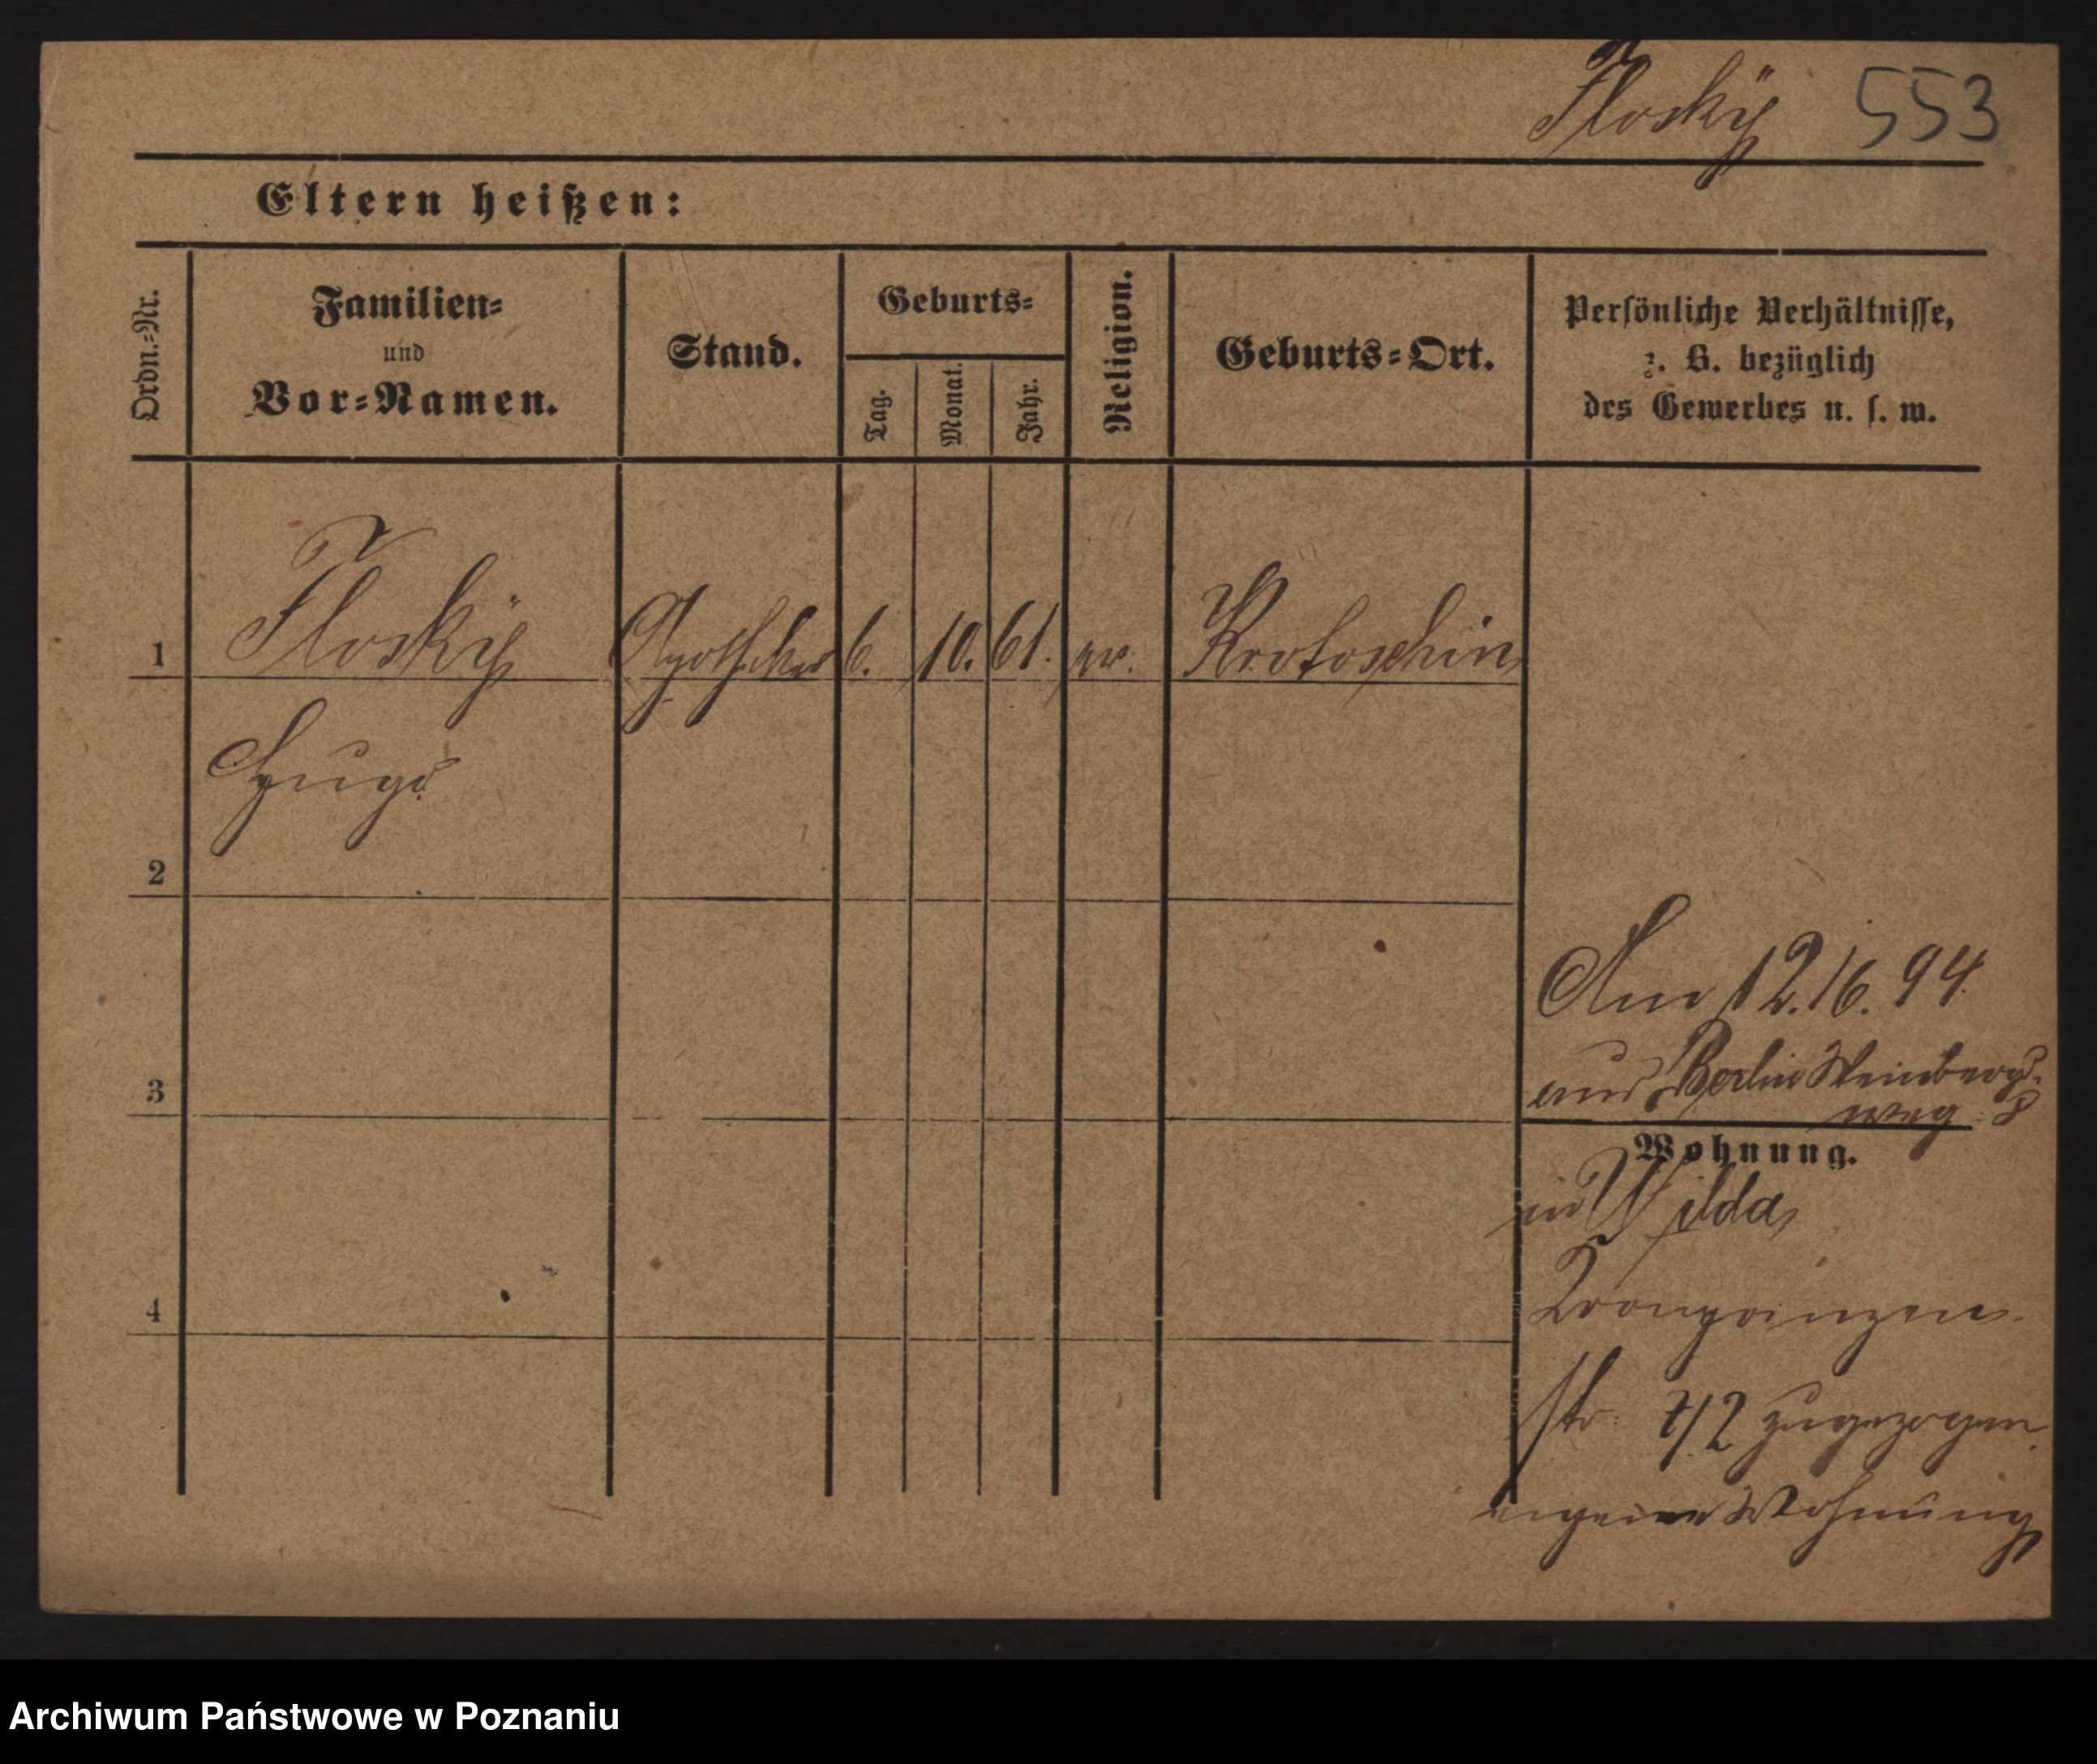 Flosky 553
Eltern heißen:
Ordn.-Nr.
Familien-
und
Vor-Namen.
Stand.
Geburts-
Tag.
Monat.
Jahr.
Religion.
Geburts-Ort.
Persönliche Verhältnisse,
z. B. bezüglich
des Gewerbes u. s. w.
1 Flosky Apotheker 6. 10. 61. Krotoschin
Hugo
2
3
4
Am 12./6. 94.
aus Berlin Weinbergs-
weg 8
Wohnung.
in Wilda
Kronprinzen-
str. 7/2 zugezogen
eigene Wohnung
Archiwum Państwowe w Poznaniu